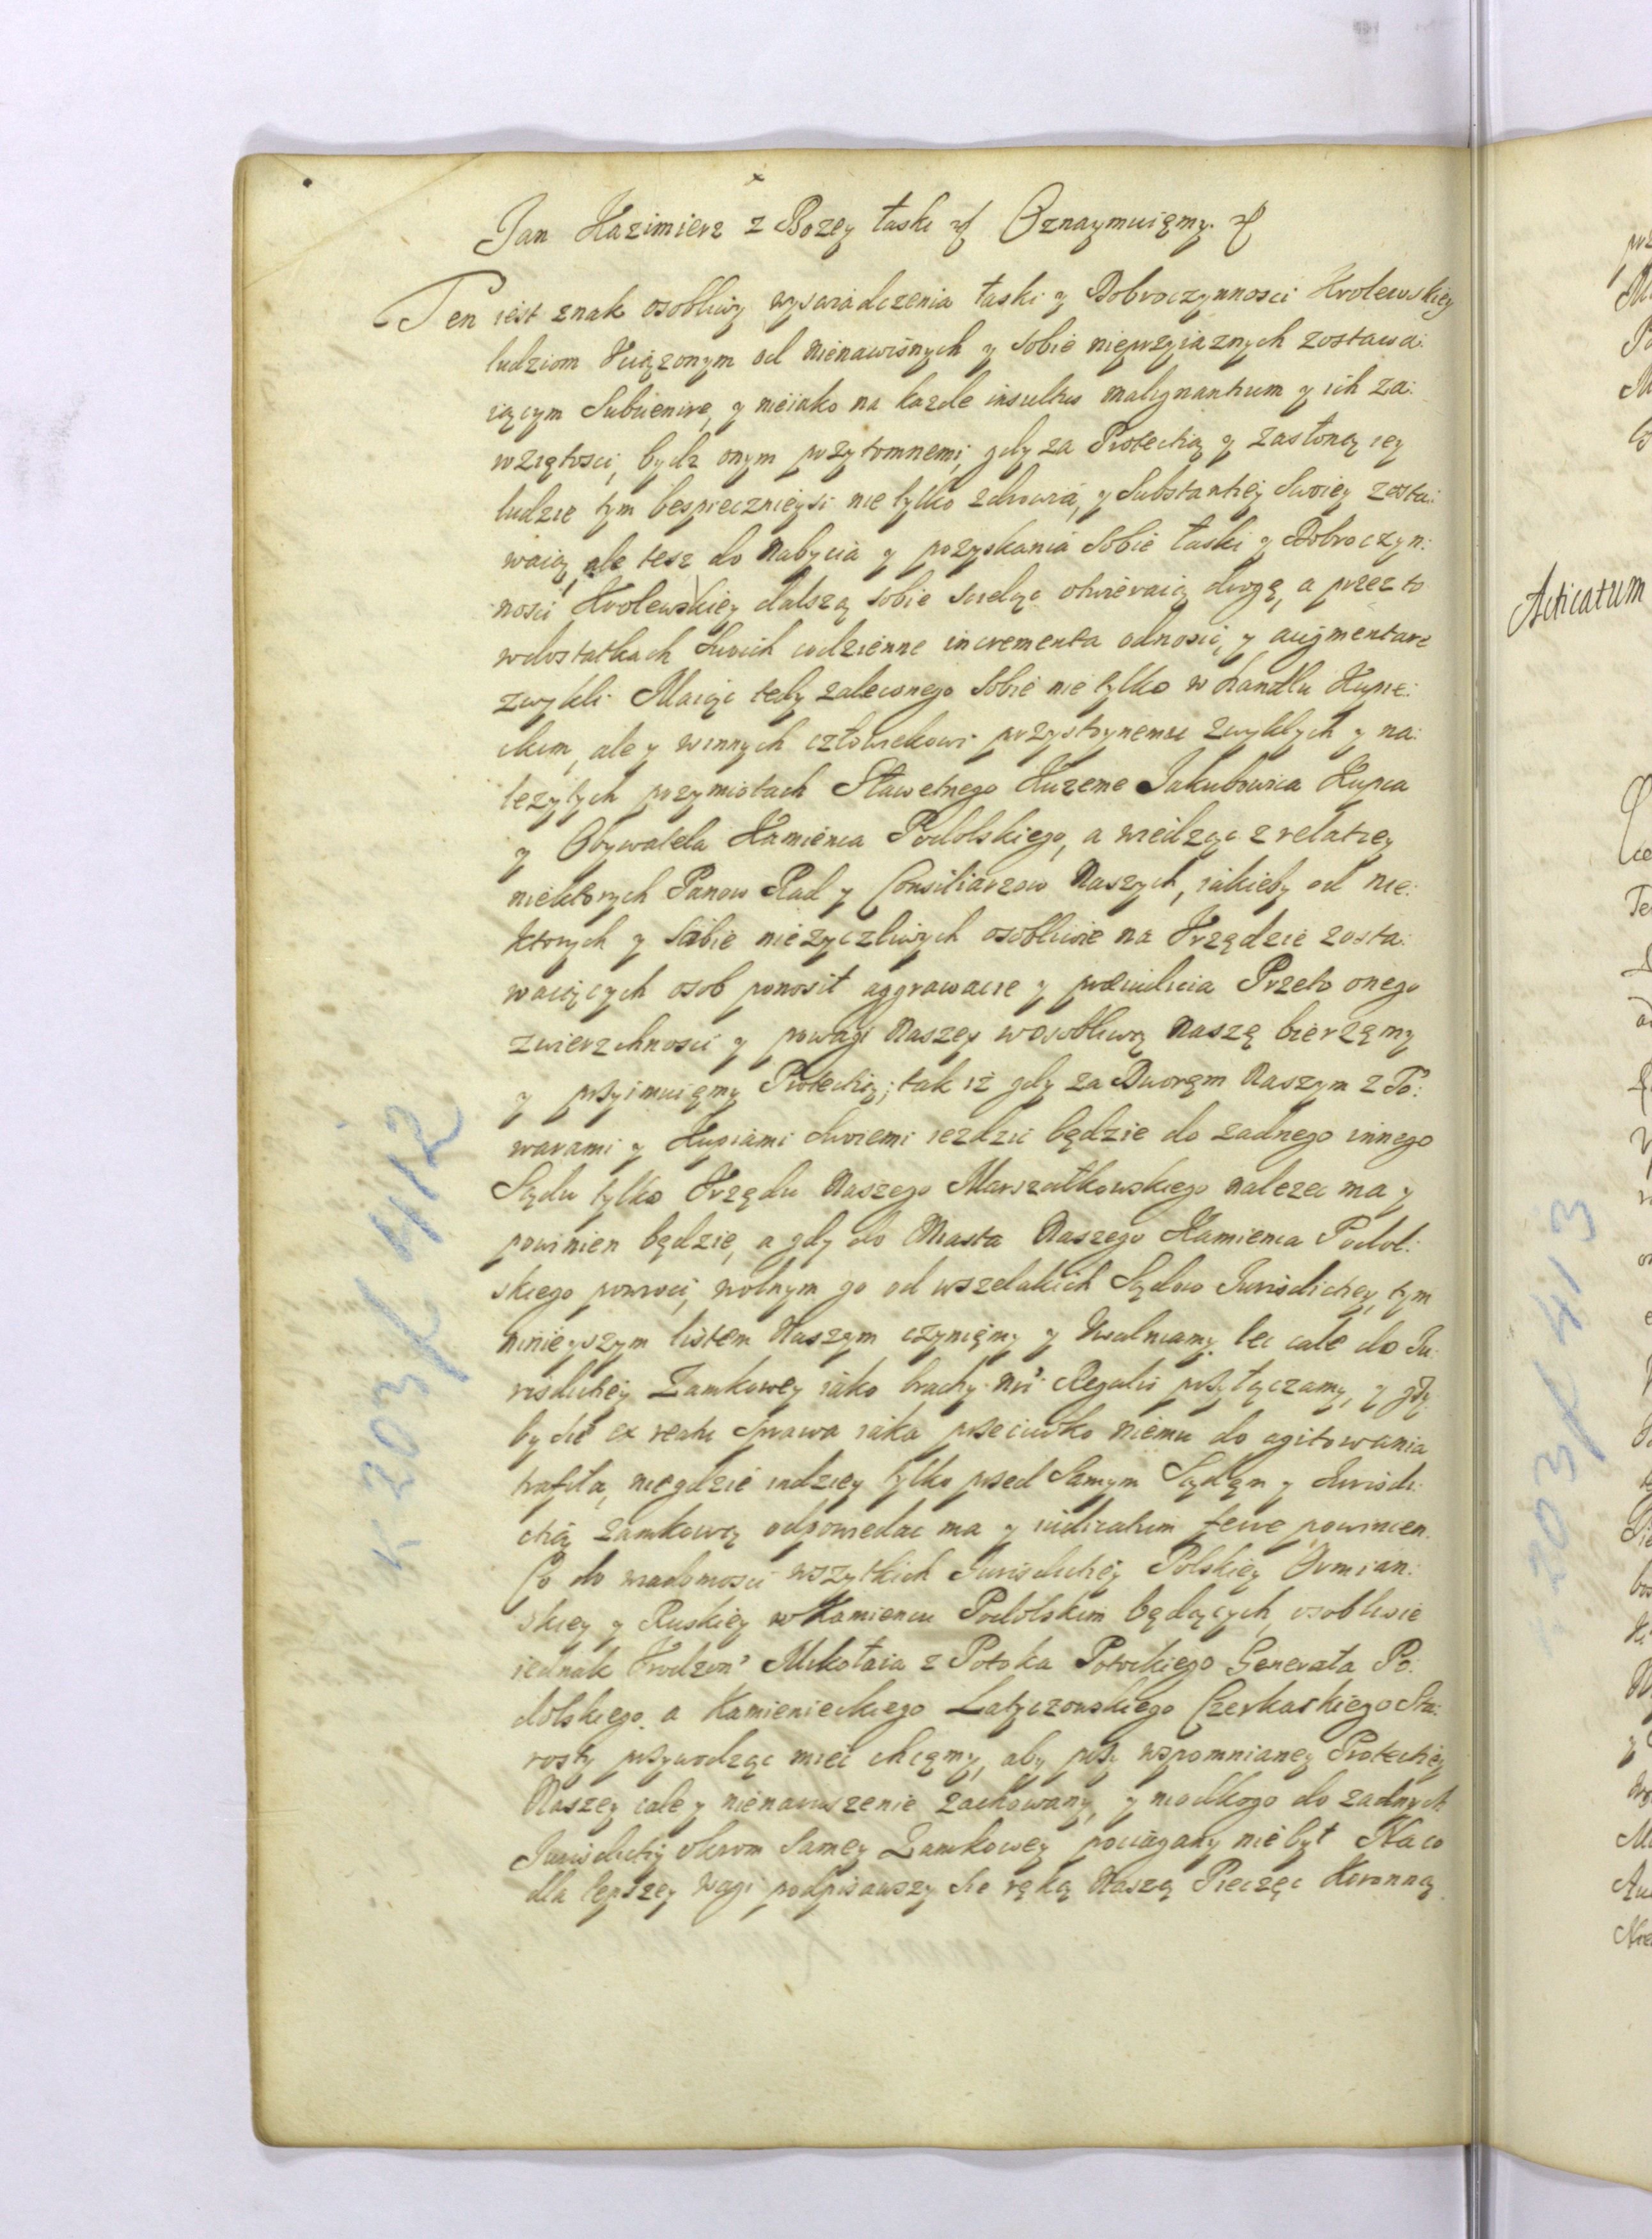 Jan Kazimierz z Bozey łaski etc Oznaymuięmy. etc
Ten iest znak osobliwy wyswiadczenia łaski y Dobroczynnosci Krolewskiey
ludziom Uciązonym od nienawisnych y sobie nieprzyiaznych zostawa:
iącym Subvenire, y nieiako na kazde insultus malignantium y ich za:
wziętosci, bydz onym przytomnemi, gdy za Protectią y zasłoną iey
ludzie tym bespiecznieysi nie tylko zdrowia, y Substantiey Swoiey zosta:
waią, ale tesz do nabycia y pozyskania sobie łaski y Dobroczyn:
nosci Krolewskiey dalszą sobie ścieląc otwieraią drogę, a przez to
wdostatkach Swoich codzienne incrementa odnosic, y augmentare
zwykli Maiąc tedy zaleconego Sobie nie tylko w handlu Kupie:
ckim, ale y winnych człowiekowi przystoynemu zwykłych y na:
lezytych przymiotach Sławetnego Kuzeme Jakubowica Kupca
y Obywatela Kamienca Podolskiego, a wiedząc z relatiey
niektorych Panow Rad y Consiliarzow Naszych, iakieby od nie:
ktorych y sobie niezyczliwych osobliwie na Urzędzie zosta:
waiących osob ponosił aggrawacie y praeiudicia Przeto onego
zwierzchnosci y powagi Naszey wosobliwą Naszę bierzęmy
y przyimuięmy Protectią; tak iz gdy za Dworęm Naszym z To:
warami y Kupiami Swoiemi iezdzic będzie do zadnego innego
Sądu tylko Urzędu Naszego Marszałkowskiego nalezec ma y
powinien będzie, a gdy do Miasta Naszego Kamienca Podol:
skiego powroci, wolnym go od wszelakich Sądow Jurisdictiey, tym
ninieyszym listem Naszym czynięmy y Uwalniamy. lec cale do Ju:
risdictiey Zamkowey iako brachy nri Regalis przyłączamy, y gdy
by sie ex reatu sprawa iaka przeciwko niemu do agitowania
trafiła, niegdzie indziey tylko przed Samym Sądęm y Jurisdi:
ctią Zamkową odpowiedac ma y iudicatum ferre powinien.
Co do wiadomosci wszytkich Jurisdictiey Polskiey Ormian:
skiey y Ruskiey w Kamiencu Podolskim będących, osobliwie
iednak Urodzon' Mikołaia z Potoka Potockiego Generała Po:
dolskiego. a Kamienieckiego Latyczowskiego Czerkaskiego Sta:
rosty przywodząc miec chcęmy, aby przy wspomnianey Protectiey
Naszey cale y nienaruszenie zachowany, y niodkogo do zadnych
Jurisdictiy okrom Samey Zamkowey pociągany niebył Na co
dla lepszey wagi podpisawszy sie ręką Naszą Pieczęc Koronną
K 203 K 412
203 K 413
Acticatum